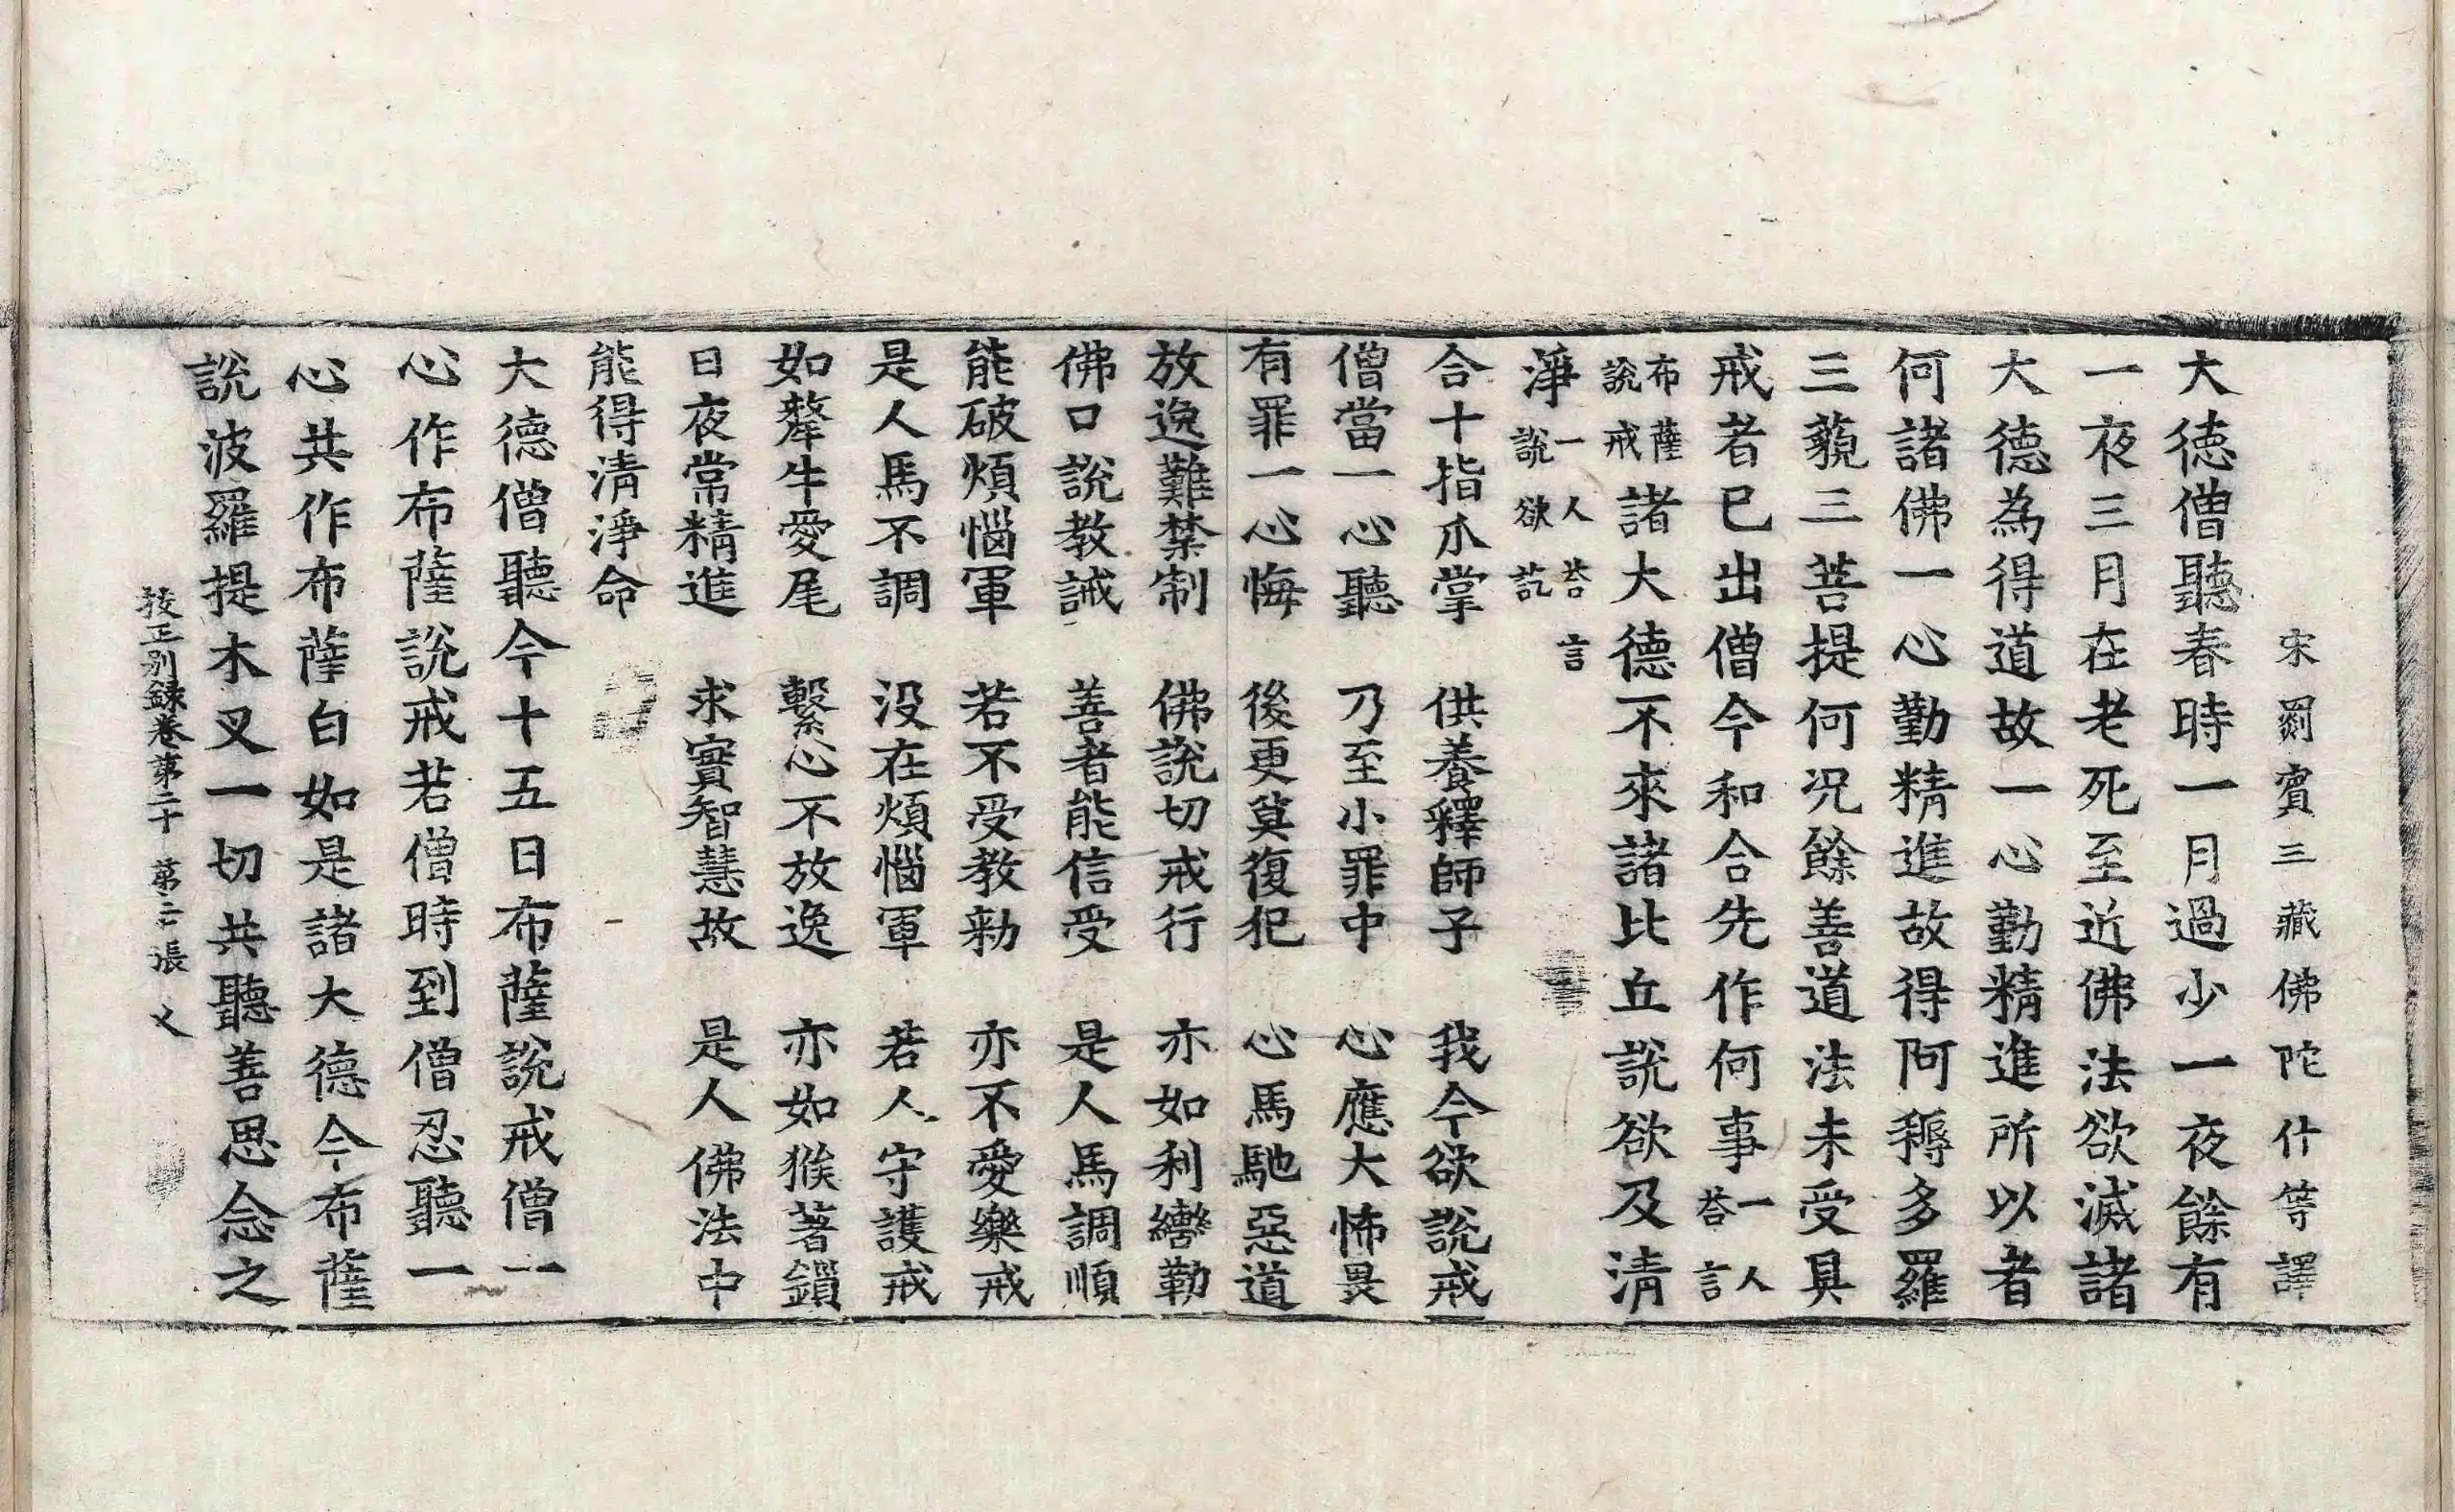 宋罽賓三藏佛陀什等譯
大德僧聽春時一月過少一夜餘有
一夜三月在老死至近佛法欲滅諸
大德為得道故一心勤精進所以者
何諸佛一心勤精進故得阿耨多羅
三藐三菩提何況餘善道法未受具
戒者已出僧今和合先作何事一人答言
布薩說戒諸大德不來諸比丘說欲及清
淨一人答言說欲訖
合十指爪掌 供養釋師子 我今欲說戒
僧當一心聽 乃至小罪中 心應大怖畏
有罪一心悔 後更莫復犯 心馬馳惡道
放逸難禁制 佛說切戒行 亦如利轡勒
佛口說教誡 善者能信受 是人馬調順
能破煩惱軍 若不受教勑 亦不愛樂戒
是人馬不調 沒在煩惱軍 若人守護戒
如犛牛愛尾 繫心不放逸 亦如猴著鎖
日夜常精進 求實智慧故 是人佛法中
能得清淨命
大德僧聽今十五日布薩說戒僧一
心作布薩說戒若僧時到僧忍聽一
心共作布薩白如是諸大德今布薩
說波羅提木叉一切共聽善思念之
挍正別錄卷第二十 第二張